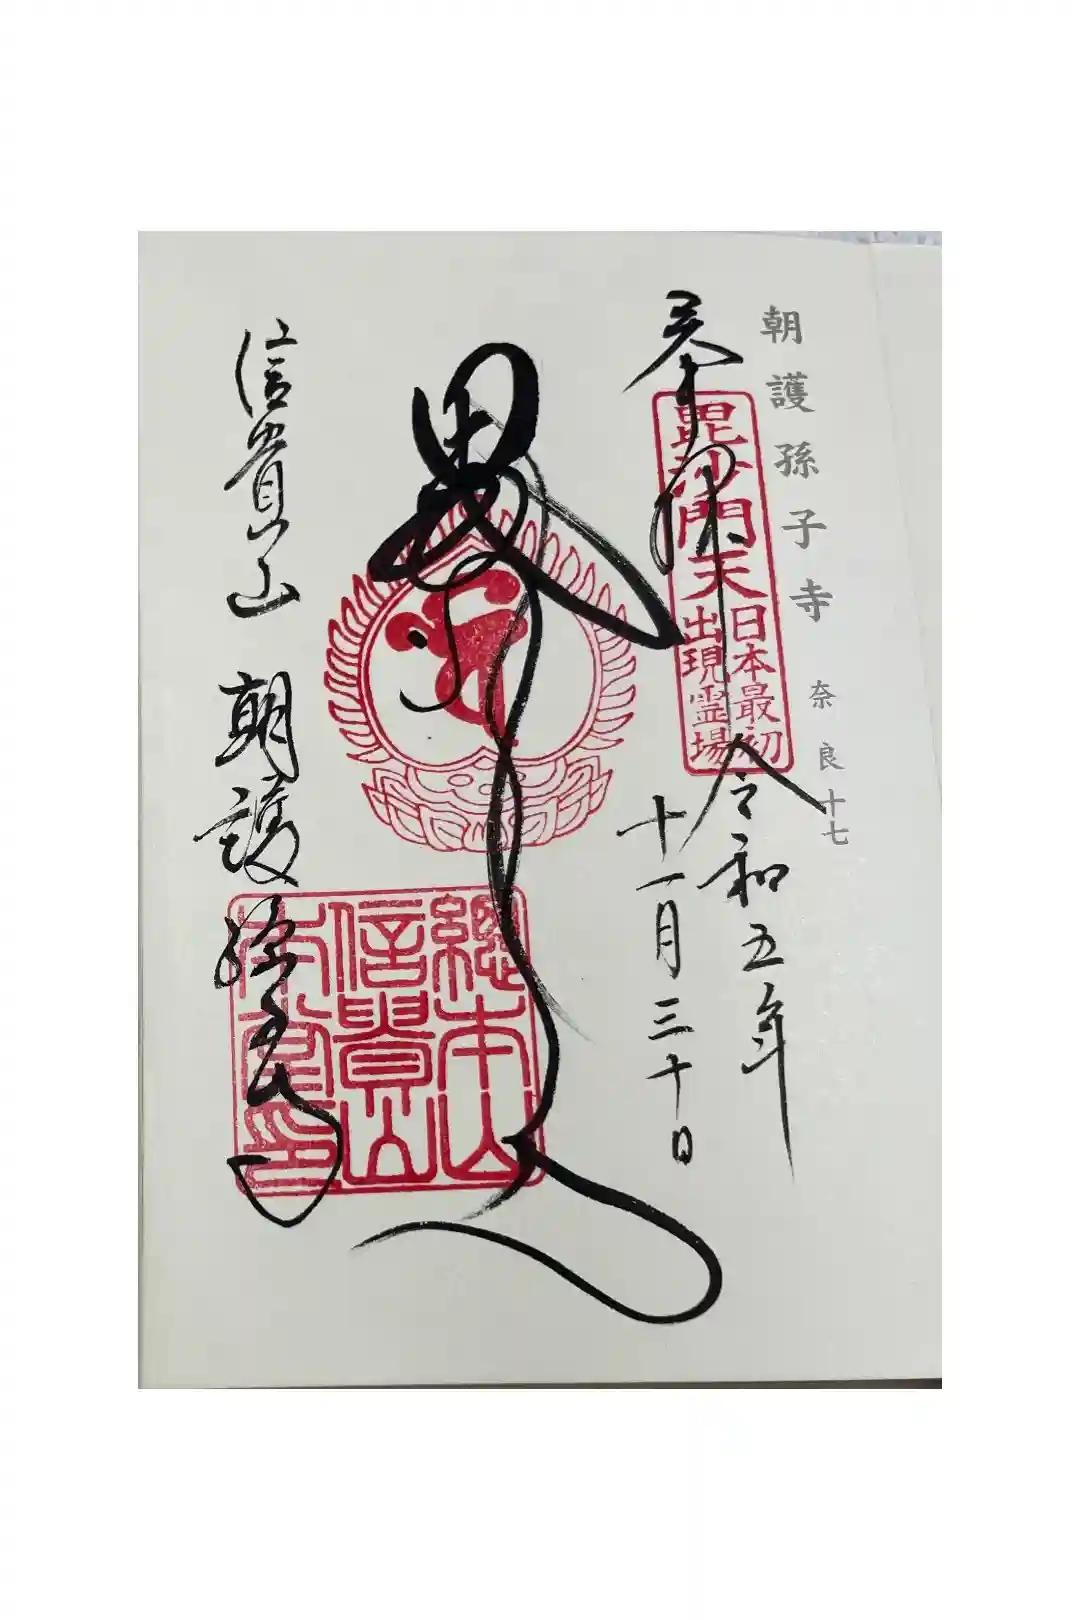 朝護孫子寺 奈良十七
奉拝 令和五年
十一月三十日
毘沙門天
日本最初
出現霊場
信貴山 朝護孫子寺
總本山
信貴山